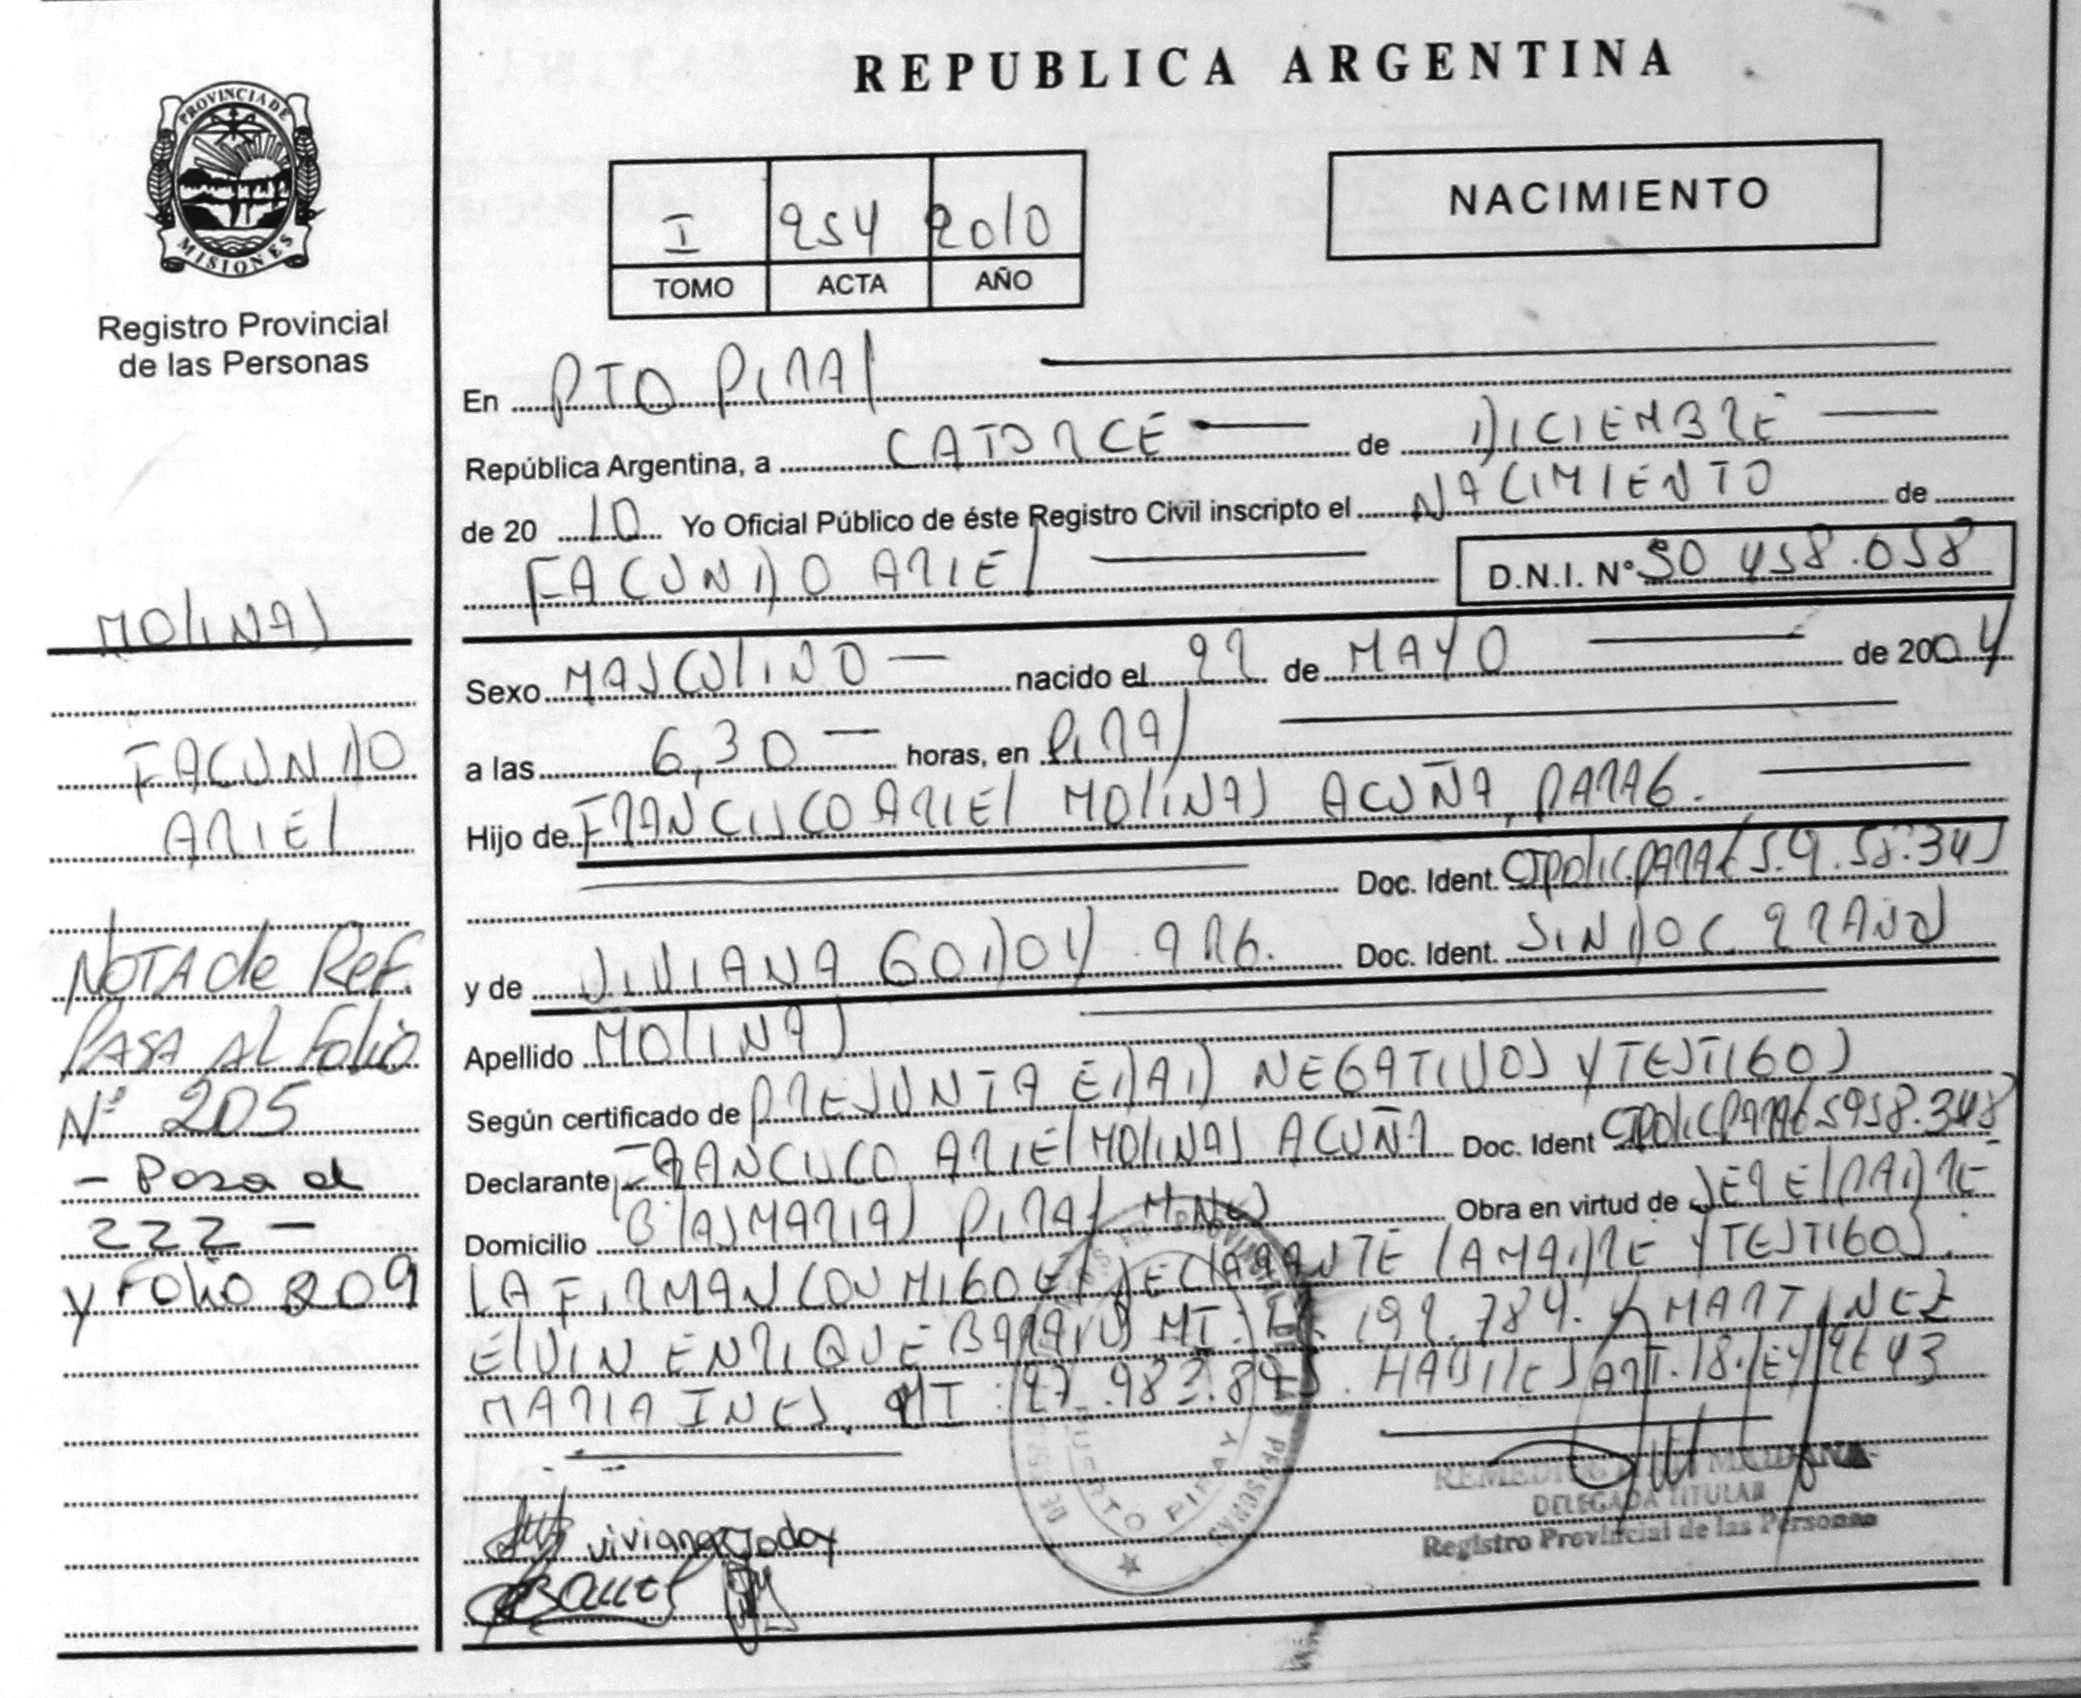 PROVINCIA DE
MISIONES
Registro Provincial
de las Personas
MOLINAS
FACUNDO
ARIEL
NOTA de Ref.
PASA AL Folio
Nº 205
- Pasa al
222 -
y Folio 209
REPUBLICA ARGENTINA
I 254 2010
TOMO ACTA AÑO
NACIMIENTO
En PTO PIRAY
República Argentina, a CATORCE de DICIEMBRE
de 20 10 Yo Oficial Público de éste Registro Civil inscripto el NACIMIENTO de
FACUNDO ARIEL D.N.I. Nº 50 458.058
Sexo MASCULINO nacido el 22 de MAYO de 2004
a las 6,30 horas, en PIRAY
Hijo de FRANCISCO ARIEL MOLINAS ACUÑA, PARAG.
Doc. Ident. CIPOLIC.PARAG 5.9.58.348
y de VIVIANA GODOY ARG. Doc. Ident. SIN DOC 22 AÑOS
Apellido MOLINAS
Según certificado de PRESUNTA EDAD NEGATIVOS Y TESTIGOS
Declarante FRANCISCO ARIEL MOLINAS ACUÑA Doc. Ident CIPOLICPARAG 5958.348
Domicilio Bº LAS MARIAS PIRAY MNES Obra en virtud de SER EL PADRE
LA FIRMAN CONMIGO EL DECLARANTE LA MADRE Y TESTIGOS.
ELVIN ENRIQUE MI: 192.784. Y MARTINEZ
MARIA INES, MI: 27.983.895. HABILES ART. 18. LEY 2643
viviana Godoy
PUERTO PIRAY
DELEGADA TITULAR
Registro Provincial de las Personas